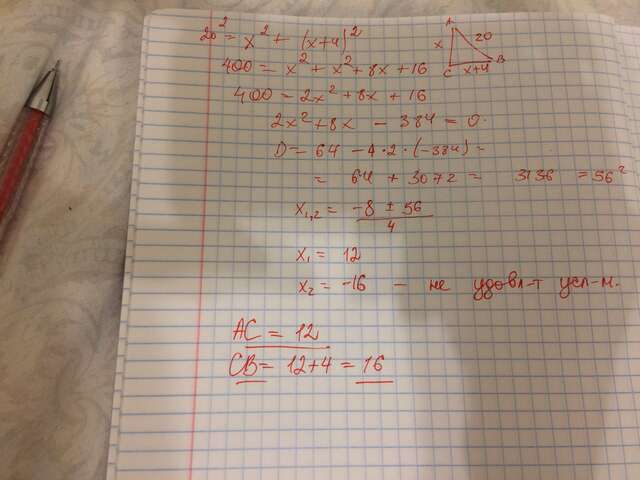 20² = x² + (x+4)²
400 = x² + x² + 8x + 16
400 = 2x² + 8x + 16
2x² + 8x - 384 = 0.
D = 64 - 4·2·(-384) =
= 64 + 3072 = 3136 = 56².
x₁,₂ = (-8 ± 56)/4
x₁ = 12
x₂ = -16 - не удовл-т усл-м.
AC = 12
CB = 12+4 = 16
A
x
20
C
x+4
B